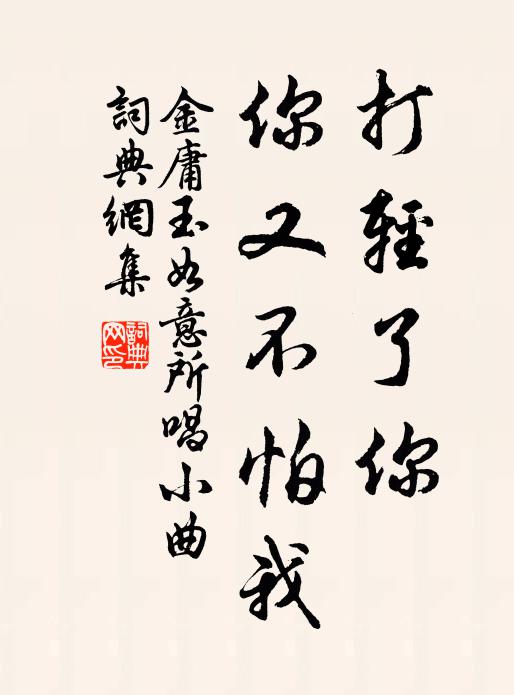 打輕了你
你又不怕我
金庸玉如意所唱小曲
詞典網集
詞典網印